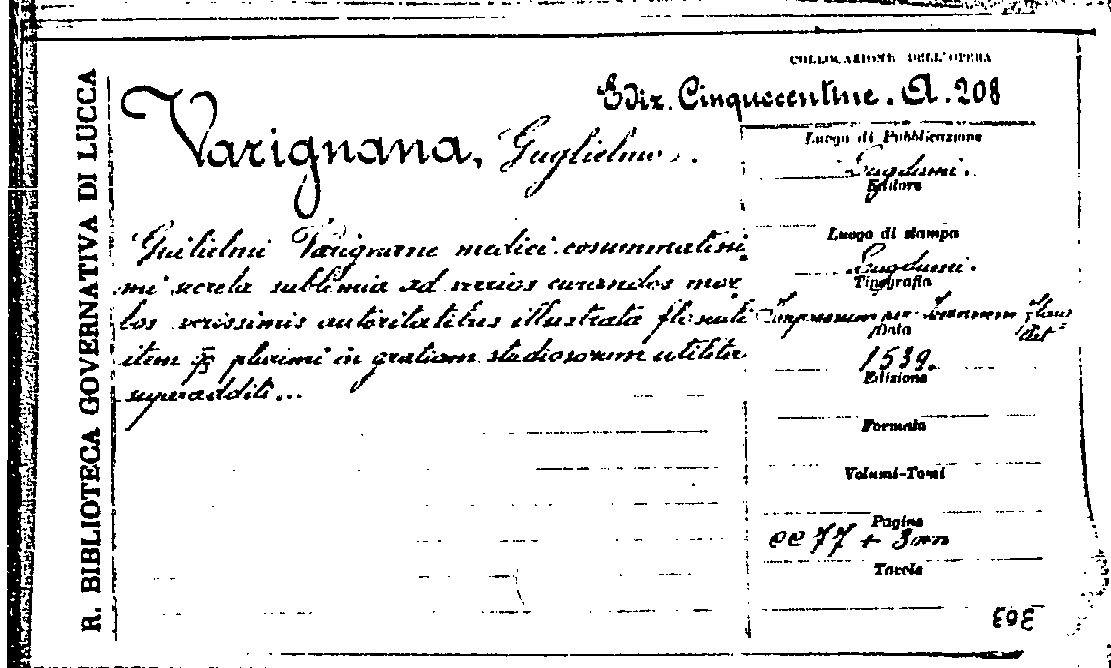 R. BIBLIOTECA GOVERNATIVA DI LUCCA
COLLOCAZIONE DELL'OPERA
Ediz. Cinquecentine. A. 208
Varignana, Guglielmo.
Guilielmi Varignane medici consummatissi
mi secreta sublimia ad varios curandos mor
bos verissimis autoritatibus illustrata
item plurimi in gratiam studiosorum
superadditi...
Luogo di Pubblicazione
Lugduni.
Editore
Luogo di stampa
Lugduni.
Tipografia
Impressum per Joannem
Data
1539.
Edizione
Formato
Volumi-Tomi
Pagine
cc 77 + 3 nn
Tavole
303